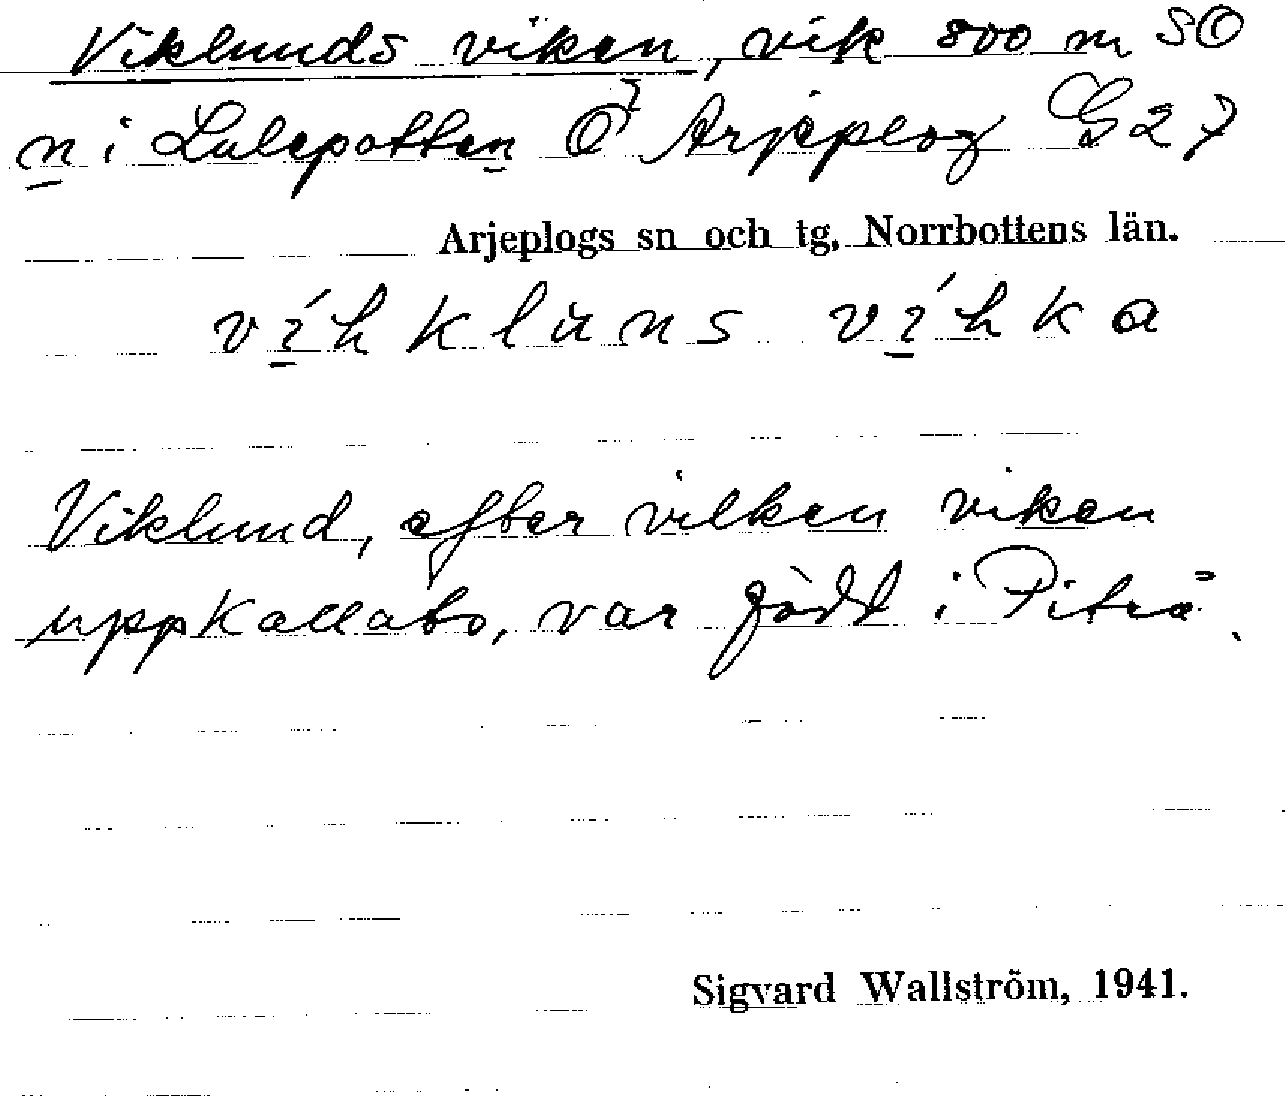 Viklundsviken, vik 800 m SO
n i Lulepotten Ö Arjeplog G 27
Arjeplogs sn och tg, Norrbottens län.
víhkluns víhka
Viklund, efter vilken viken
uppkallats, var född i Piteå.
Sigvard Wallström, 1941.